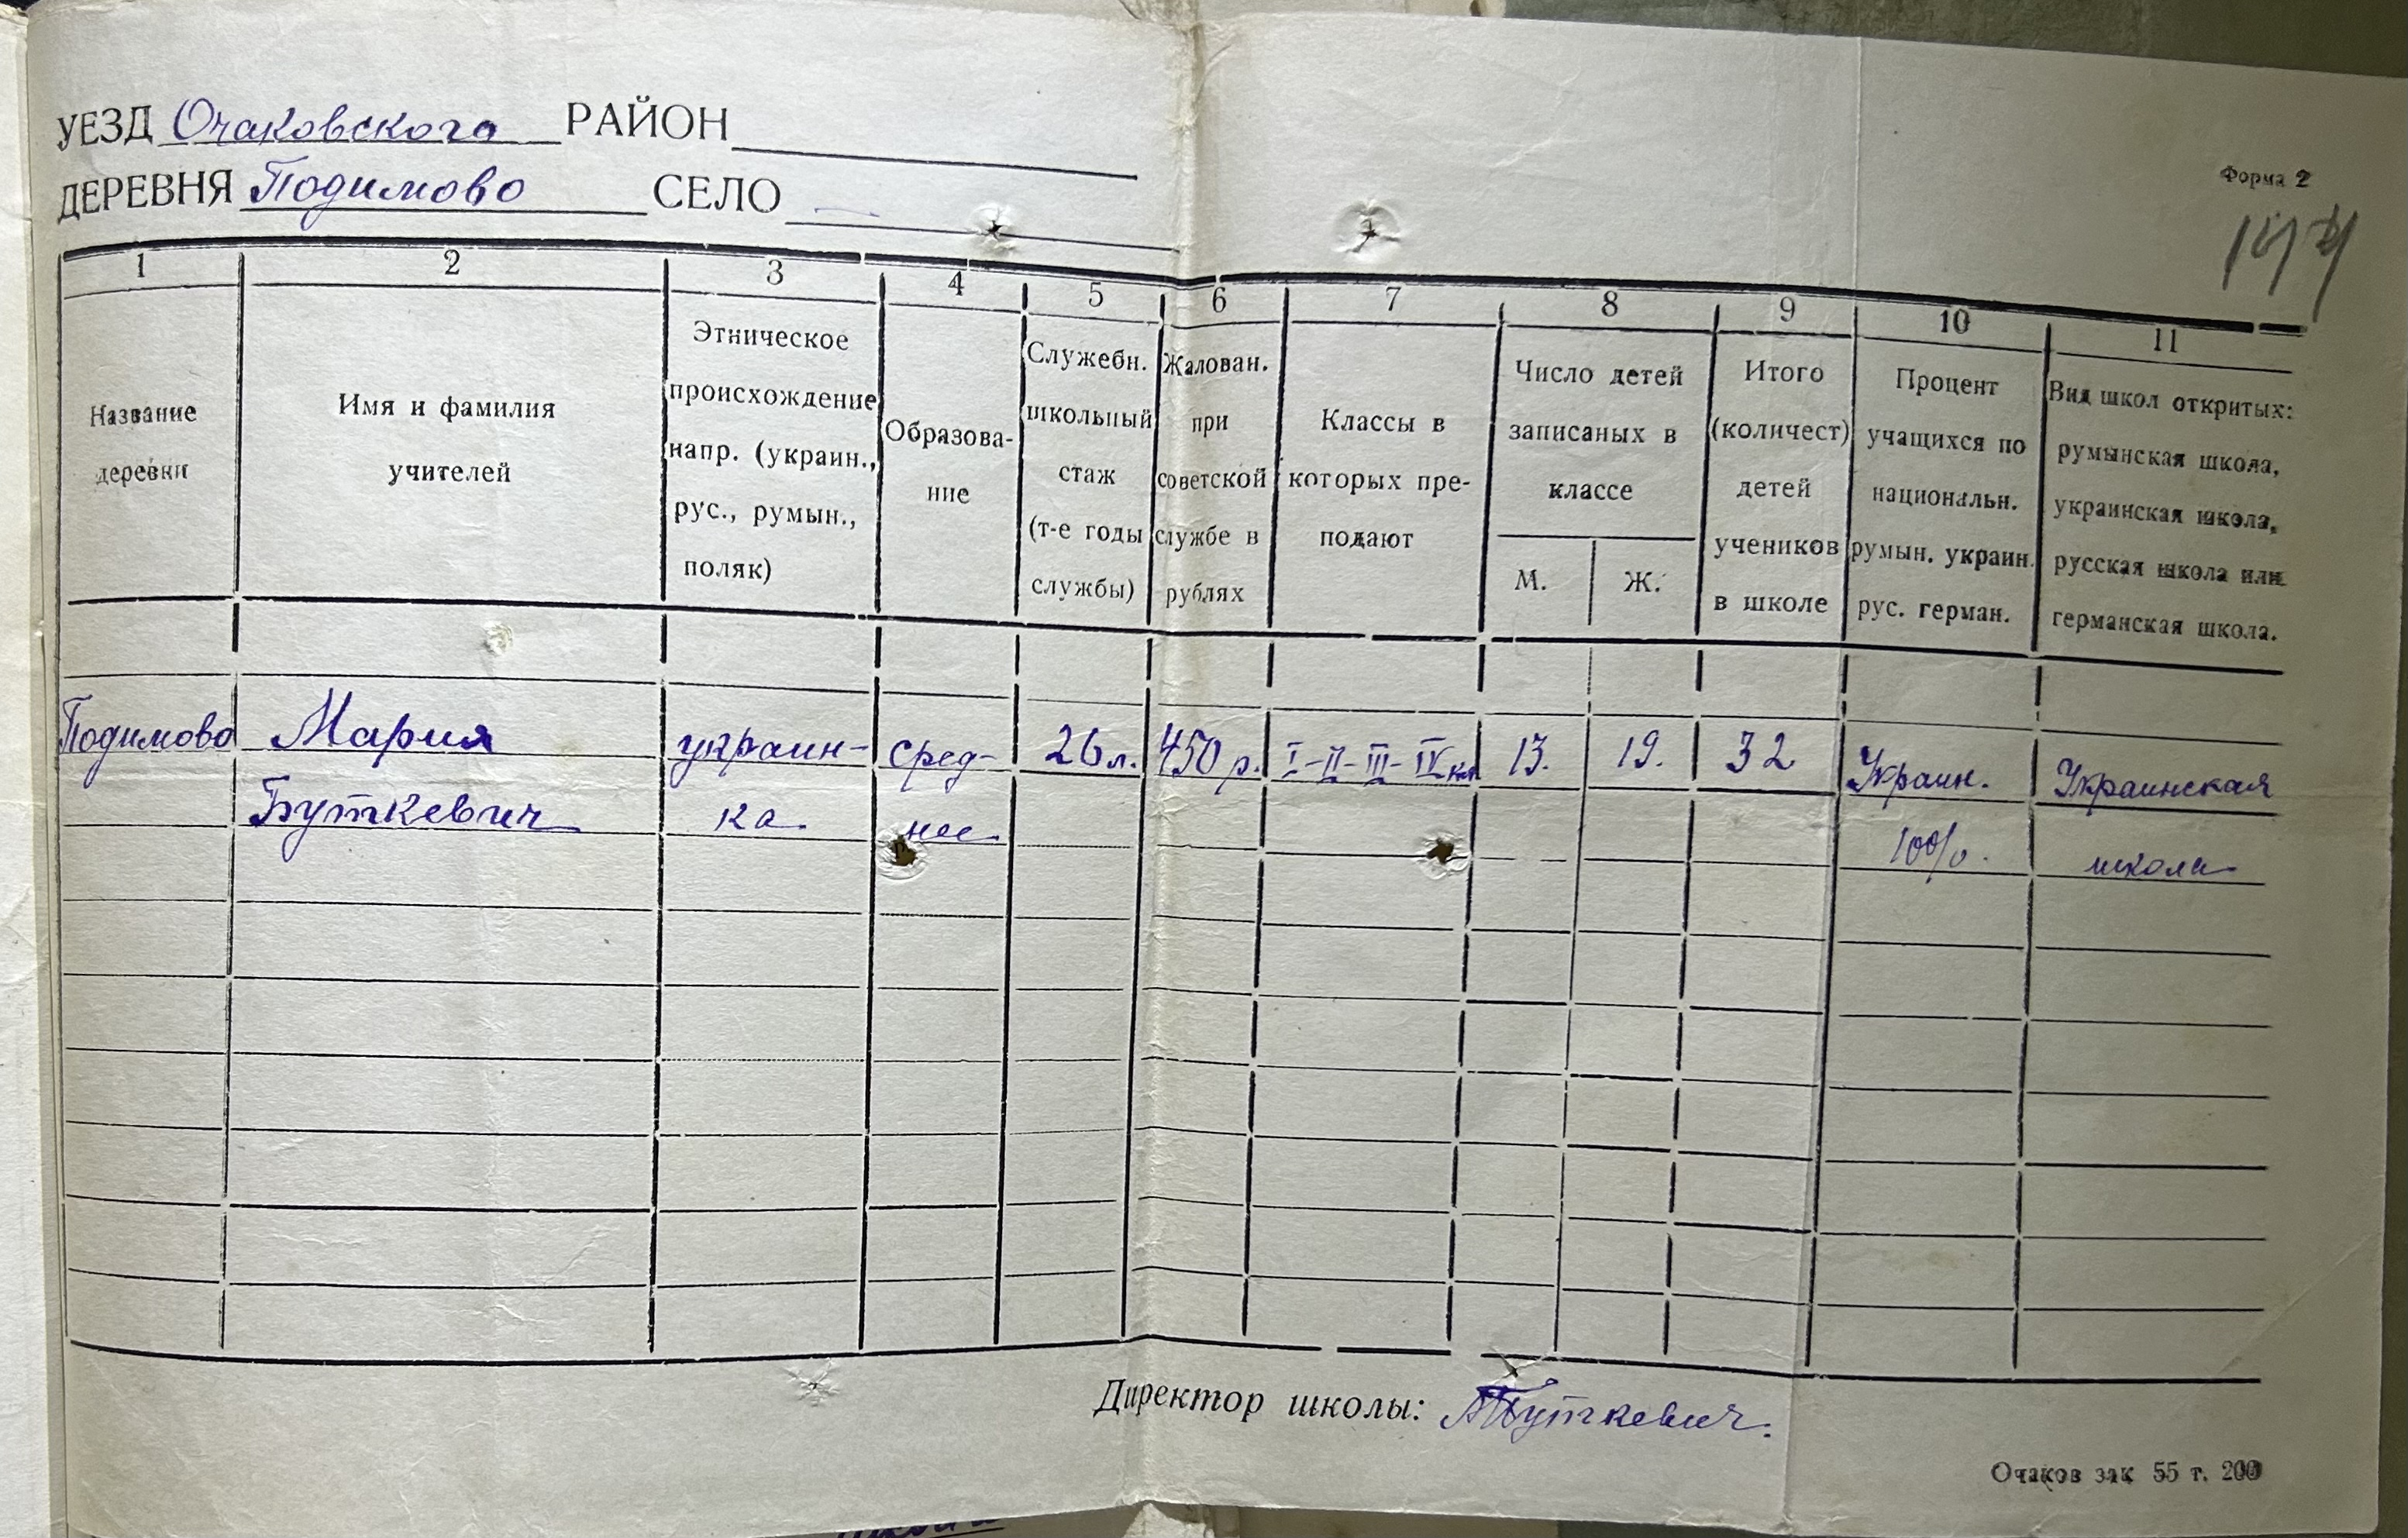 УЕЗД Очаковского РАЙОН
ДЕРЕВНЯ Подимово СЕЛО —
Форма 2
1 2 3 4 5 6 7 8 9 10 11
Название
деревни
Имя и фамилия
учителей
Этническое
происхождение
напр. (украин.,
рус., румын.,
поляк)
Образова-
ние
Служебн.
школьный
стаж
(т-е годы
службы)
Жалован.
при
советской
службе в
рублях
Классы в
которых пре-
подают
Число детей
записаных в
классе
М. Ж.
Итого
(количест)
детей
учеников
в школе
Процент
учащихся по
национальн.
румын. украин.
рус. герман.
Вид школ откритых:
румынская школа,
украинская школа,
русская школа или
германская школа.
Подимово Мария украин- сред- 26 л. 450 р. I-II-III-IV кл 13. 19. 32 Украин. Украинская
Буткевич ка нее 100%. школа
Директор школы: МБуткевич.
Очаков зак 55 т. 200